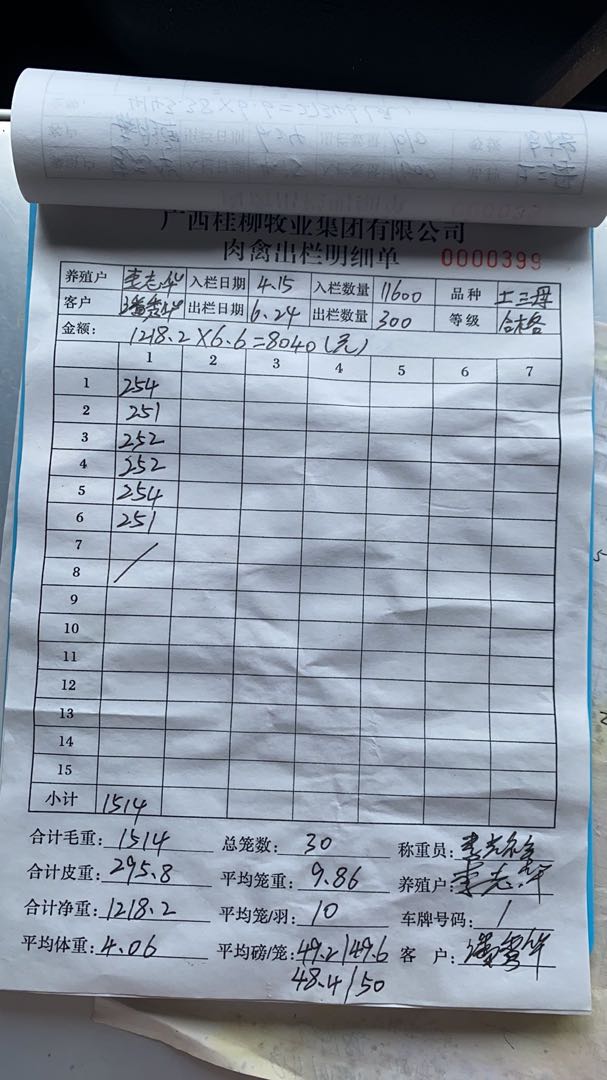 广西桂柳牧业集团有限公司
肉禽出栏明细单 0000399
养殖户 李志华 入栏日期 4.15 入栏数量 11600 品种 土三母
客户 潘雪华 出栏日期 6.24 出栏数量 300 等级 合格
金额: 1218.2×6.6=8040(元)
1 2 3 4 5 6 7
1 254
2 251
3 252
4 252
5 254
6 251
7
8
9
10
11
12
13
14
15
小计 1514
合计毛重: 1514 总笼数: 30 称重员: 李
合计皮重: 295.8 平均笼重: 9.86 养殖户: 李志华
合计净重: 1218.2 平均笼/羽: 10 车牌号码: /
平均体重: 4.06 平均磅/笼: 49.2/49.6 客 户: 潘雪华
48.4/50